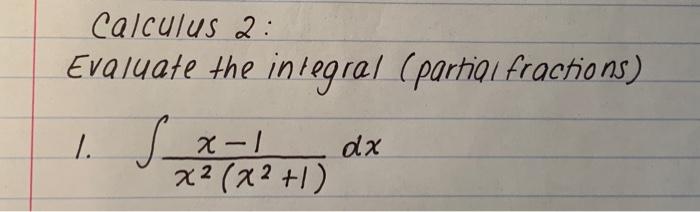 Calculus 2:
Evaluate the integral (partial fractions)
1. ∫ x-1 / x² (x² +1) dx